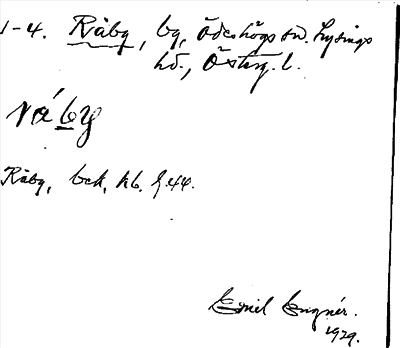 1-4. Råby, by, Ödeshögs sn. Lysings
hd., Österg. l.
råby
Råby, bek, hb. f. 44.
Emil Engnér.
1929.